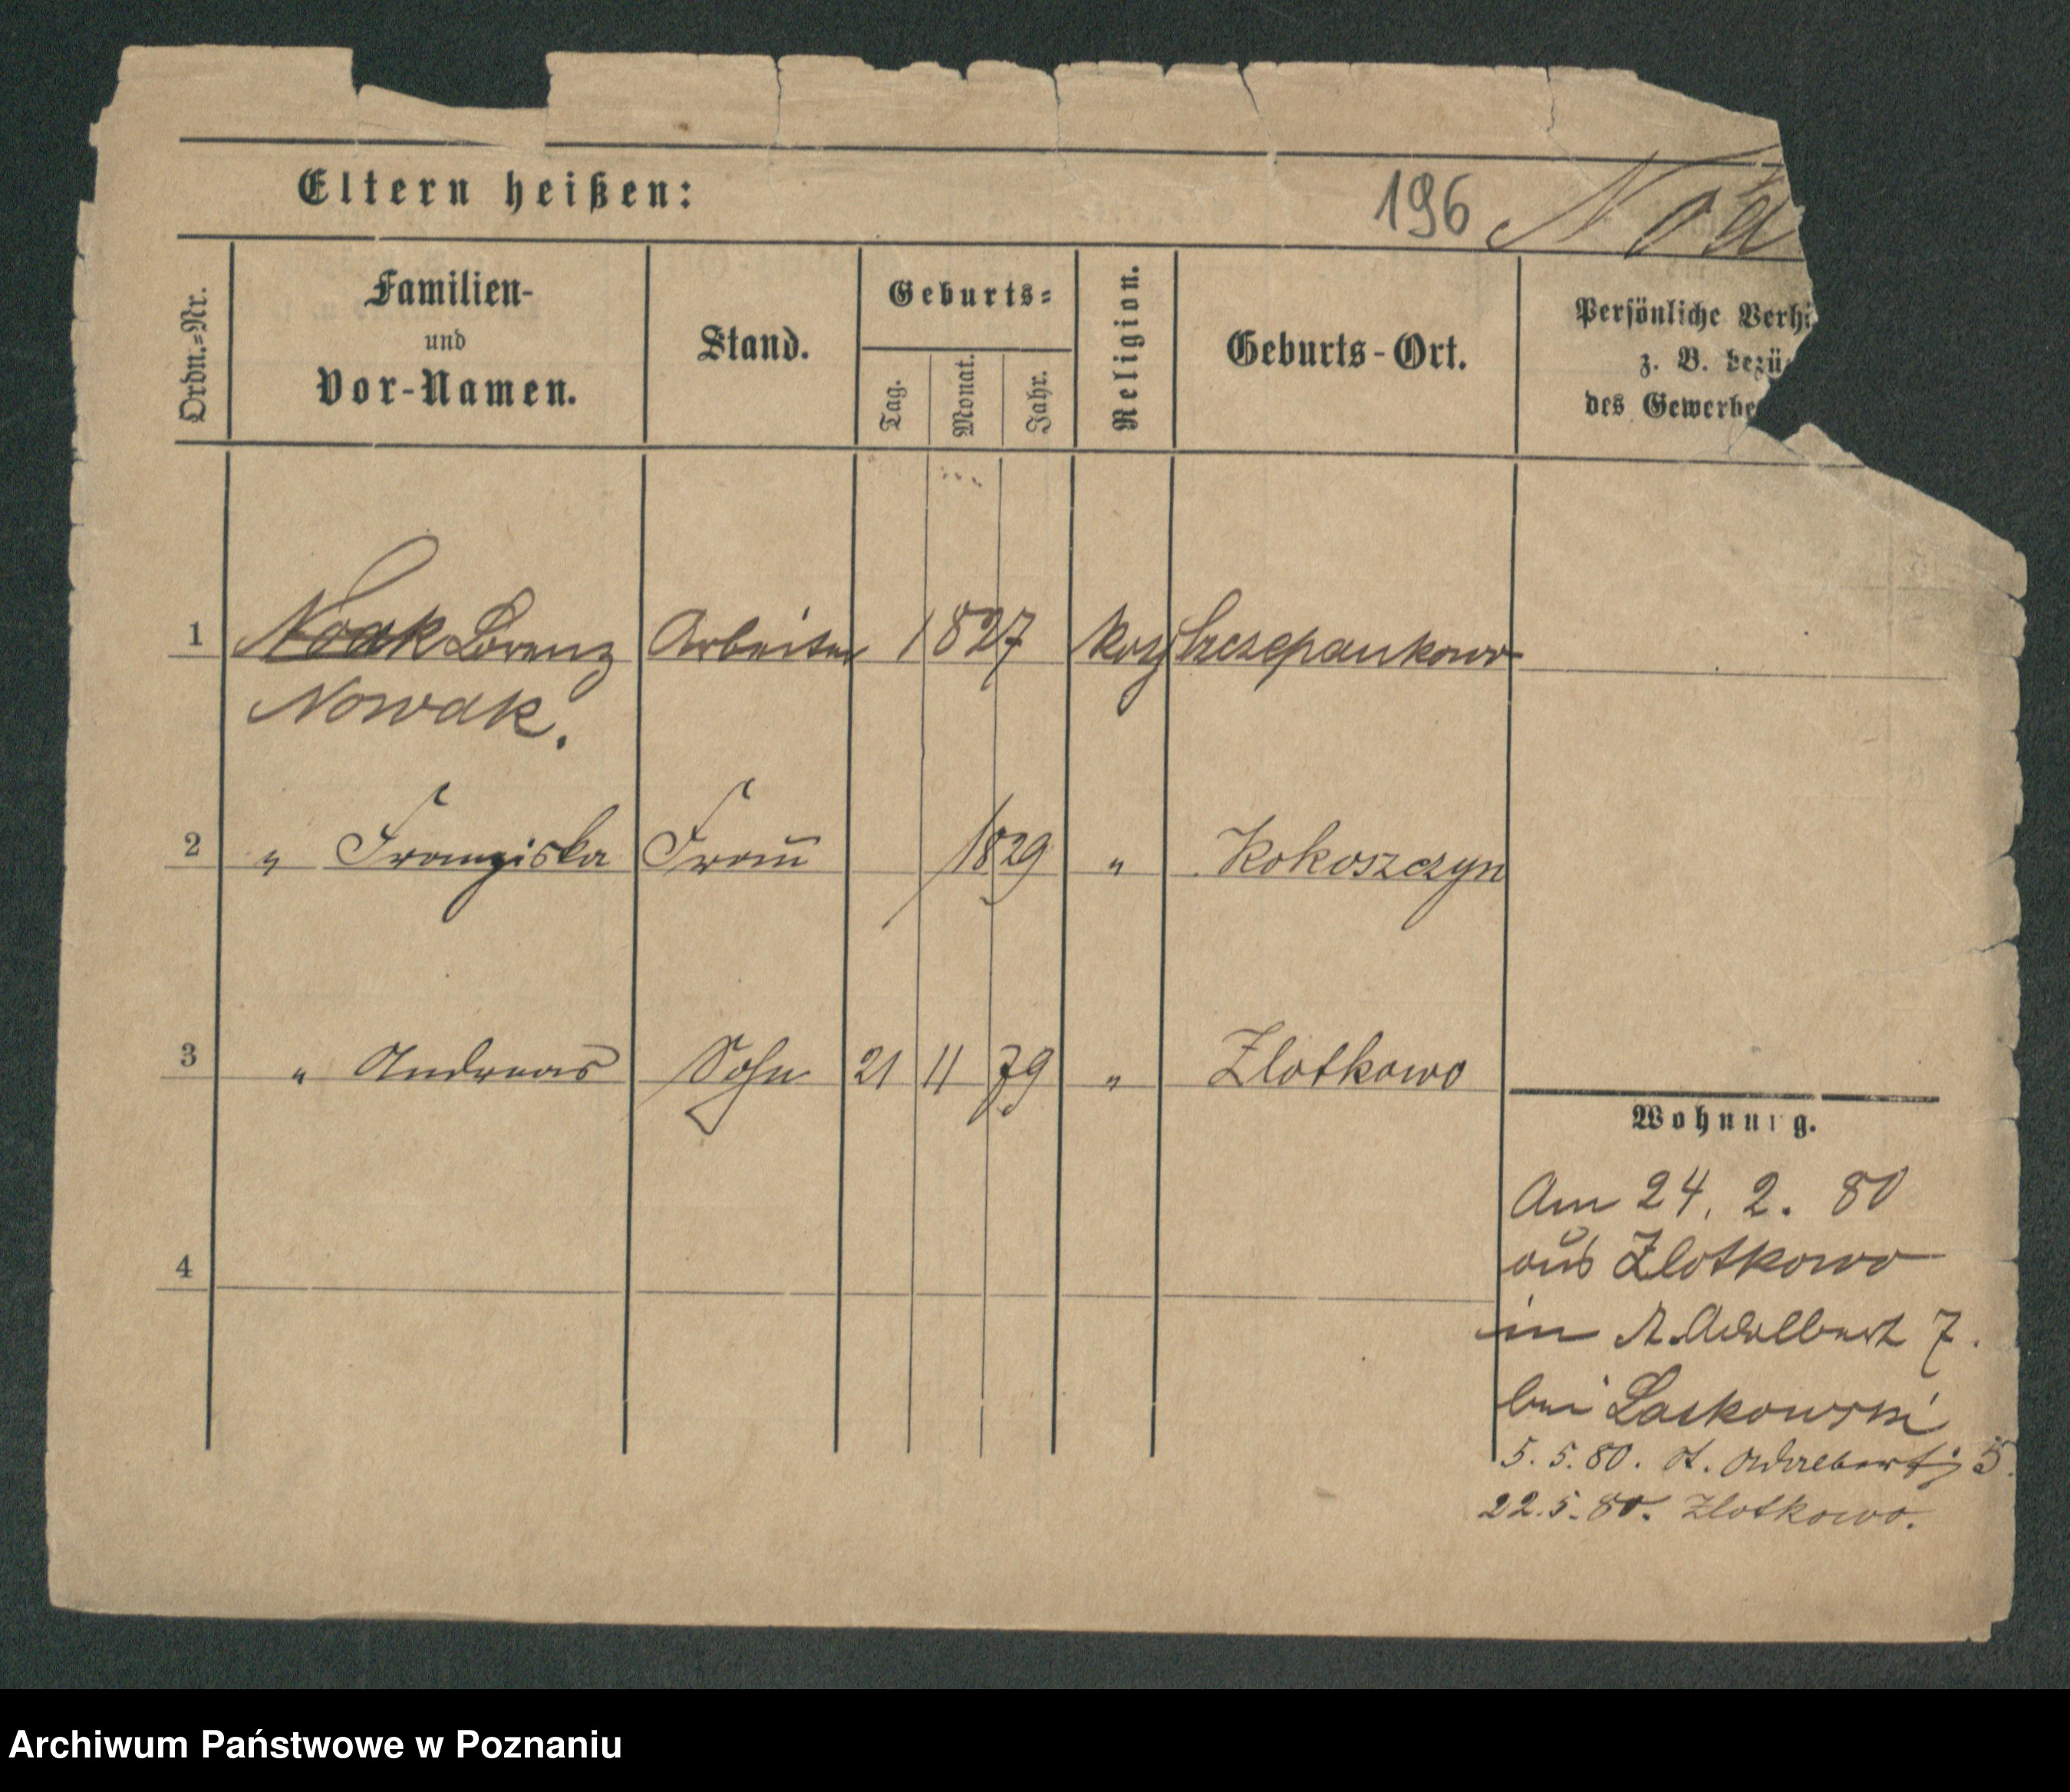 Eltern heißen:
196 Noa
Ordn.-Nr.
Familien-
und
Vor-Namen.
Stand.
Geburts-
Tag.
Monat.
Jahr.
Religion.
Geburts-Ort.
Persönliche Verhä
z. B. bezü
des Gewerbe
1 Noak Lorenz Arbeiter 1827 Szczepankowo
Nowak.
2 " Franziska Frau 1829 " Kokoszczyn
3 " Andreas Sohn 21 11 79 " Zlotkowo
Wohnung.
Am 24. 2. 80
4
aus Zlotkowo
in St. Adalbert 7.
bei Laskowski
5. 5. 80. St. Adalbert 5.
22. 5. 80. Zlotkowo.
Archiwum Państwowe w Poznaniu